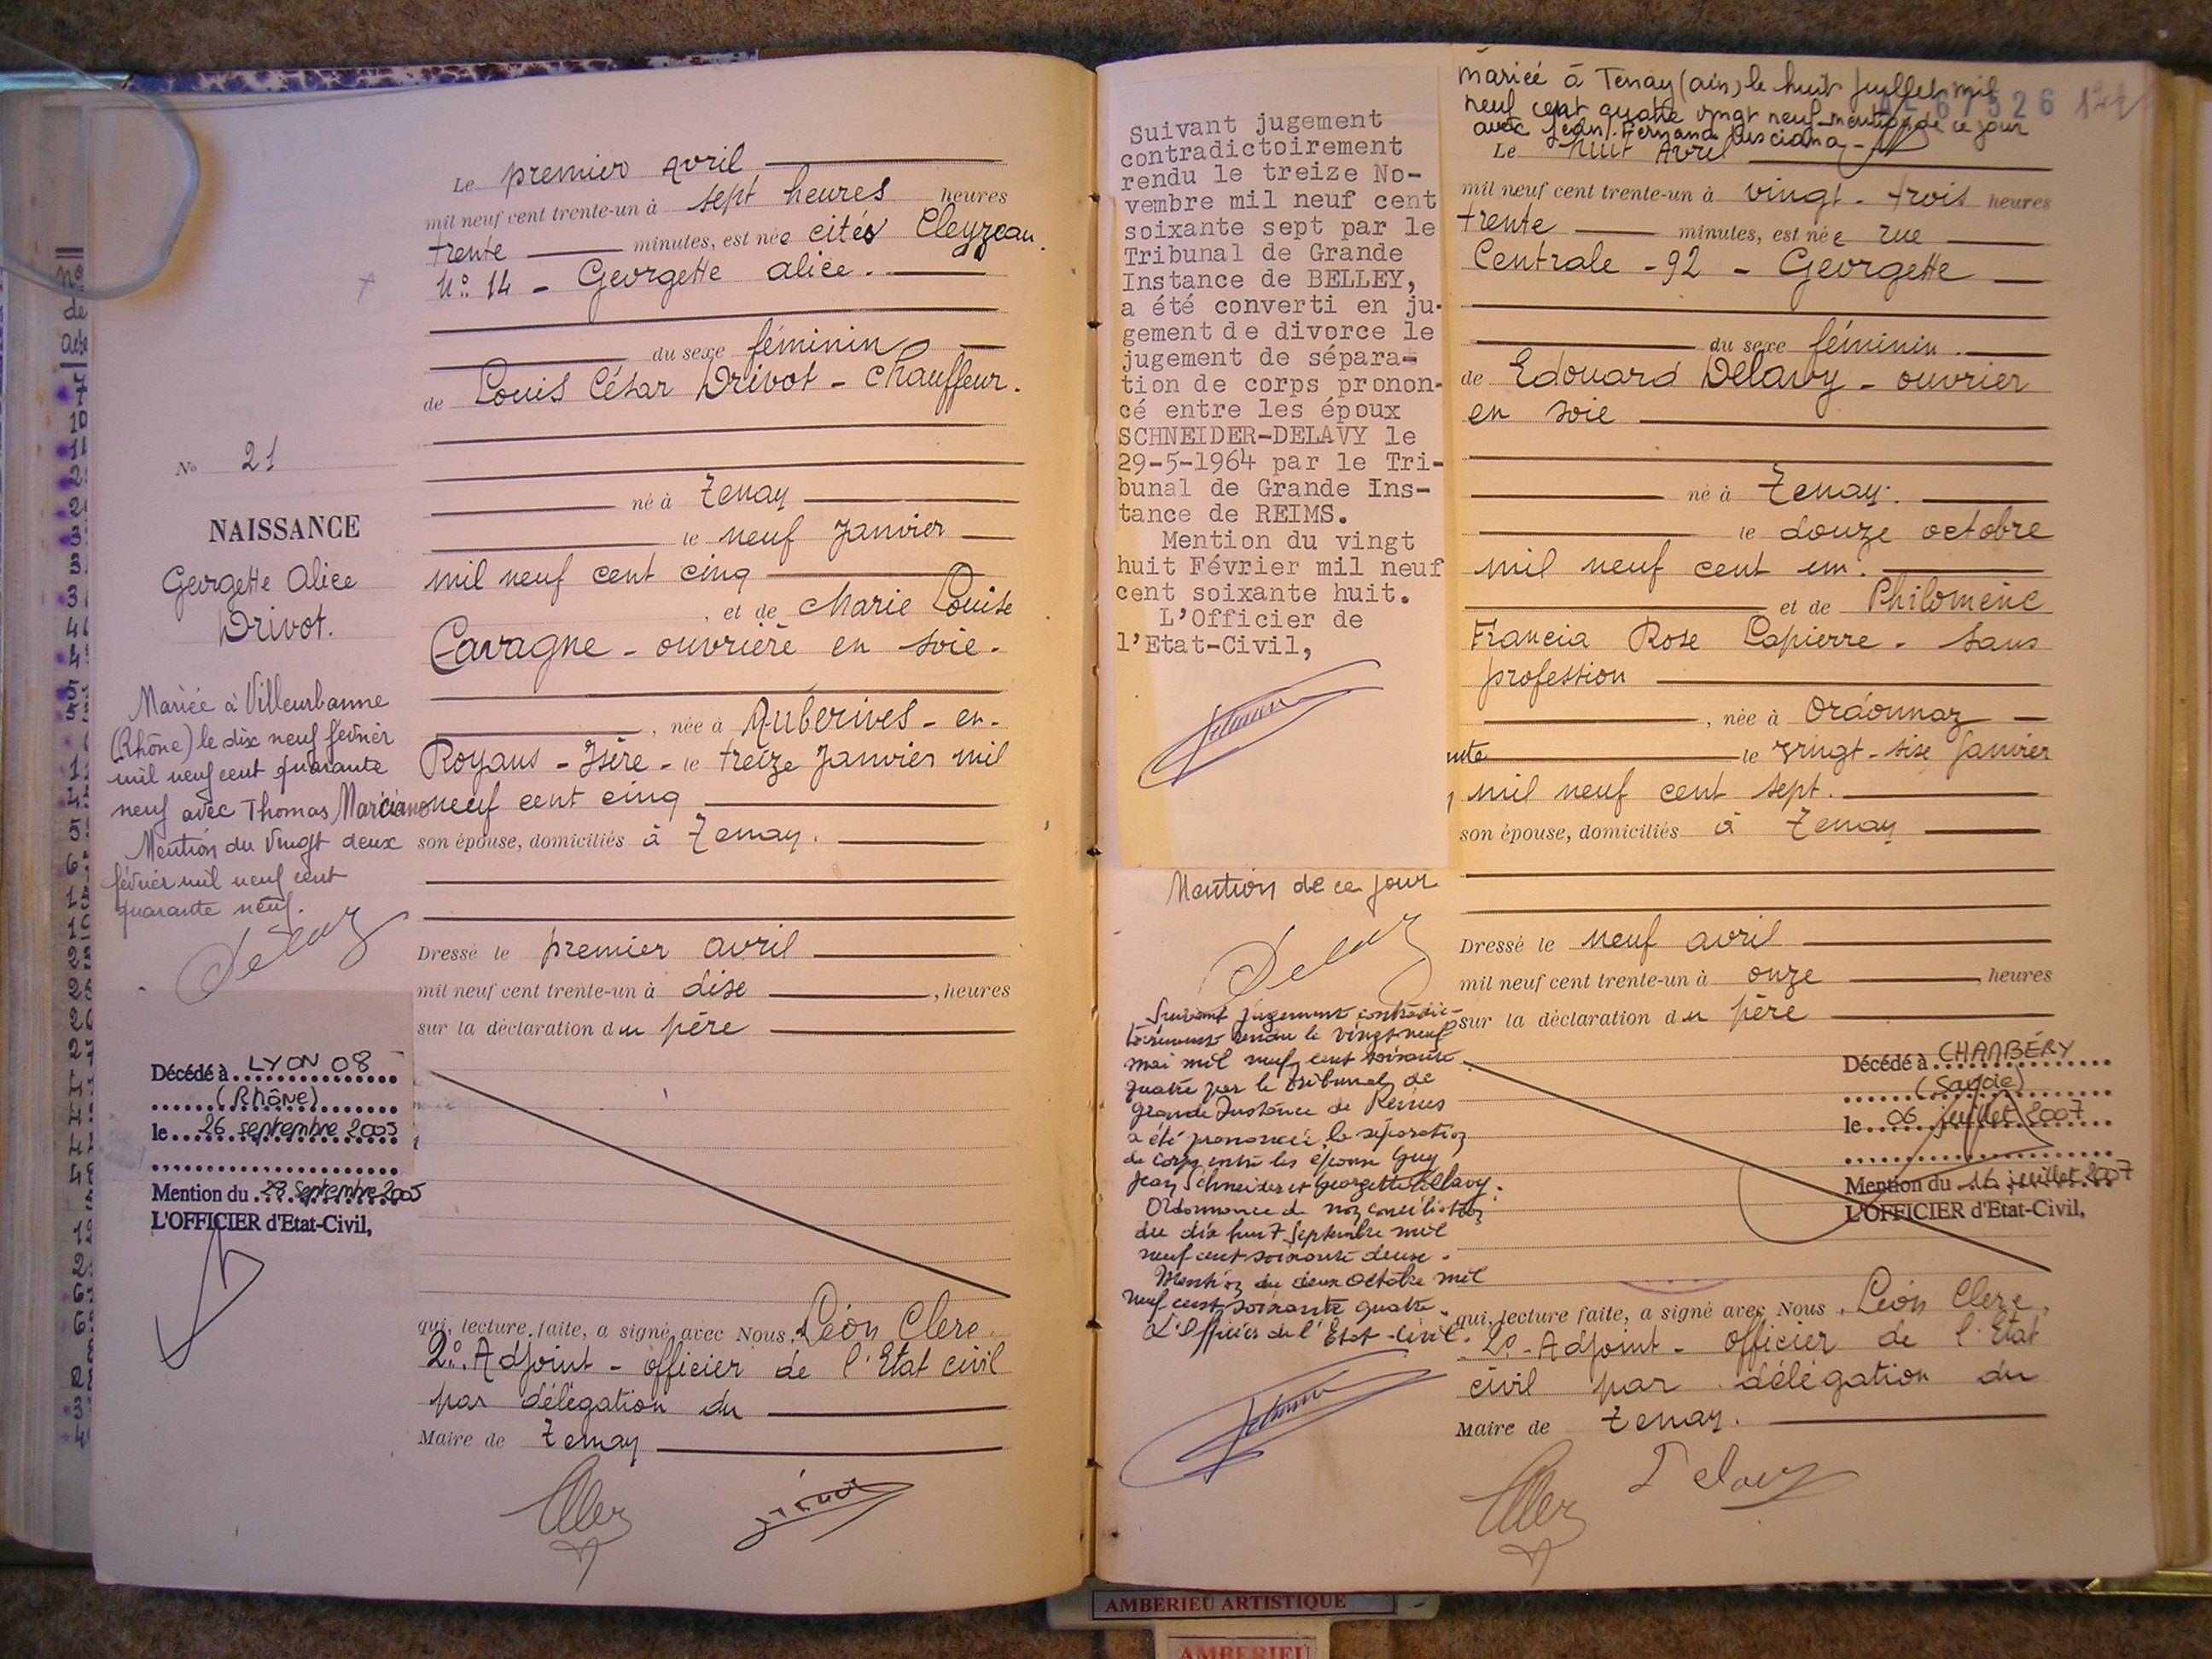 Le premier avril
mil neuf cent trente-un à sept heures heures
trente minutes, est née cités Cleyzeau.
N° 14 - Georgette Alice.
du sexe féminin
de Louis César Drivot - Chauffeur.
né à Tenay
le neuf Janvier
mil neuf cent cinq
, et de Marie Louise
Cavagne - ouvrière en soie.
, née à Auberives - en -
Royans - Isère - le treize Janvier mil
neuf cent cinq
son épouse, domiciliés à Tenay.
Dressé le premier avril
mil neuf cent trente-un à dise , heures
sur la déclaration du père
qui, lecture faite, a signé avec Nous, Léon Clerc.
2°. Adjoint - officier de l'Etat civil
par délégation du
Maire de Tenay
N° 21
NAISSANCE
Georgette Alice
Drivot.
Mariée à Villeurbanne
(Rhône) le dix neuf février
mil neuf cent quarante
neuf avec Thomas Marciano
Mention du vingt deux
février mil neuf cent
quarante neuf.
Delavy
Décédé à LYON 08
(Rhône)
le 26 septembre 2005
Mention du 28 septembre 2005
L'OFFICIER d'Etat-Civil,
Suivant jugement
contradictoirement
rendu le treize No-
vembre mil neuf cent
soixante sept par le
Tribunal de Grande
Instance de BELLEY,
a été converti en ju-
gement de divorce le
jugement de sépara-
tion de corps pronon-
cé entre les époux
SCHNEIDER-DELAVY le
29-5-1964 par le Tri-
bunal de Grande Ins-
tance de REIMS.
Mention du vingt
huit Février mil neuf
cent soixante huit.
L'Officier de
l'Etat-Civil,
Mention de ce jour
Delavy
Suivant jugement contradic-
toirement rendu le vingt neuf
mai mil neuf cent soixante
quatre par le tribunal de
grande Instance de Reims
a été prononcée la séparation
de corps entre les époux Guy
Jean Schneider et Georgette Delavy.
Ordonnance de non conciliation
du dix huit Septembre mil
neuf cent soixante deux.
Mention du deux octobre mil
neuf cent soixante quatre.
L'Officier de l'Etat-Civil.
mariée à Tenay (ain) le huit juillet mil
neuf cent quatre vingt neuf mention de ce jour
avec Jean Fernand
67526
Le huit Avril
mil neuf cent trente-un à vingt - trois heures
trente minutes, est née rue
Centrale - 92 - Georgette
du sexe féminin.
de Edouard Delavy - ouvrier
en soie
né à Tenay.
le douze octobre
mil neuf cent un.
et de Philomène
Francia Rose Lapierre - sans
profession
, née à Ordonnaz
le vingt-sise Janvier
mil neuf cent sept.
son épouse, domiciliés à Tenay
Dressé le neuf avril
mil neuf cent trente-un à onze , heures
sur la déclaration du père
Décédé à CHAMBÉRY
(Savoie)
le 06 juillet 2007
Mention du 16 juillet 2007
L'OFFICIER d'Etat-Civil,
qui, lecture faite, a signé avec Nous, Léon Clerc,
2°. Adjoint - officier de l'Etat
civil par délégation du
Maire de Tenay.
Delavy
AMBERIEU ARTISTIQUE
AMBERIEU